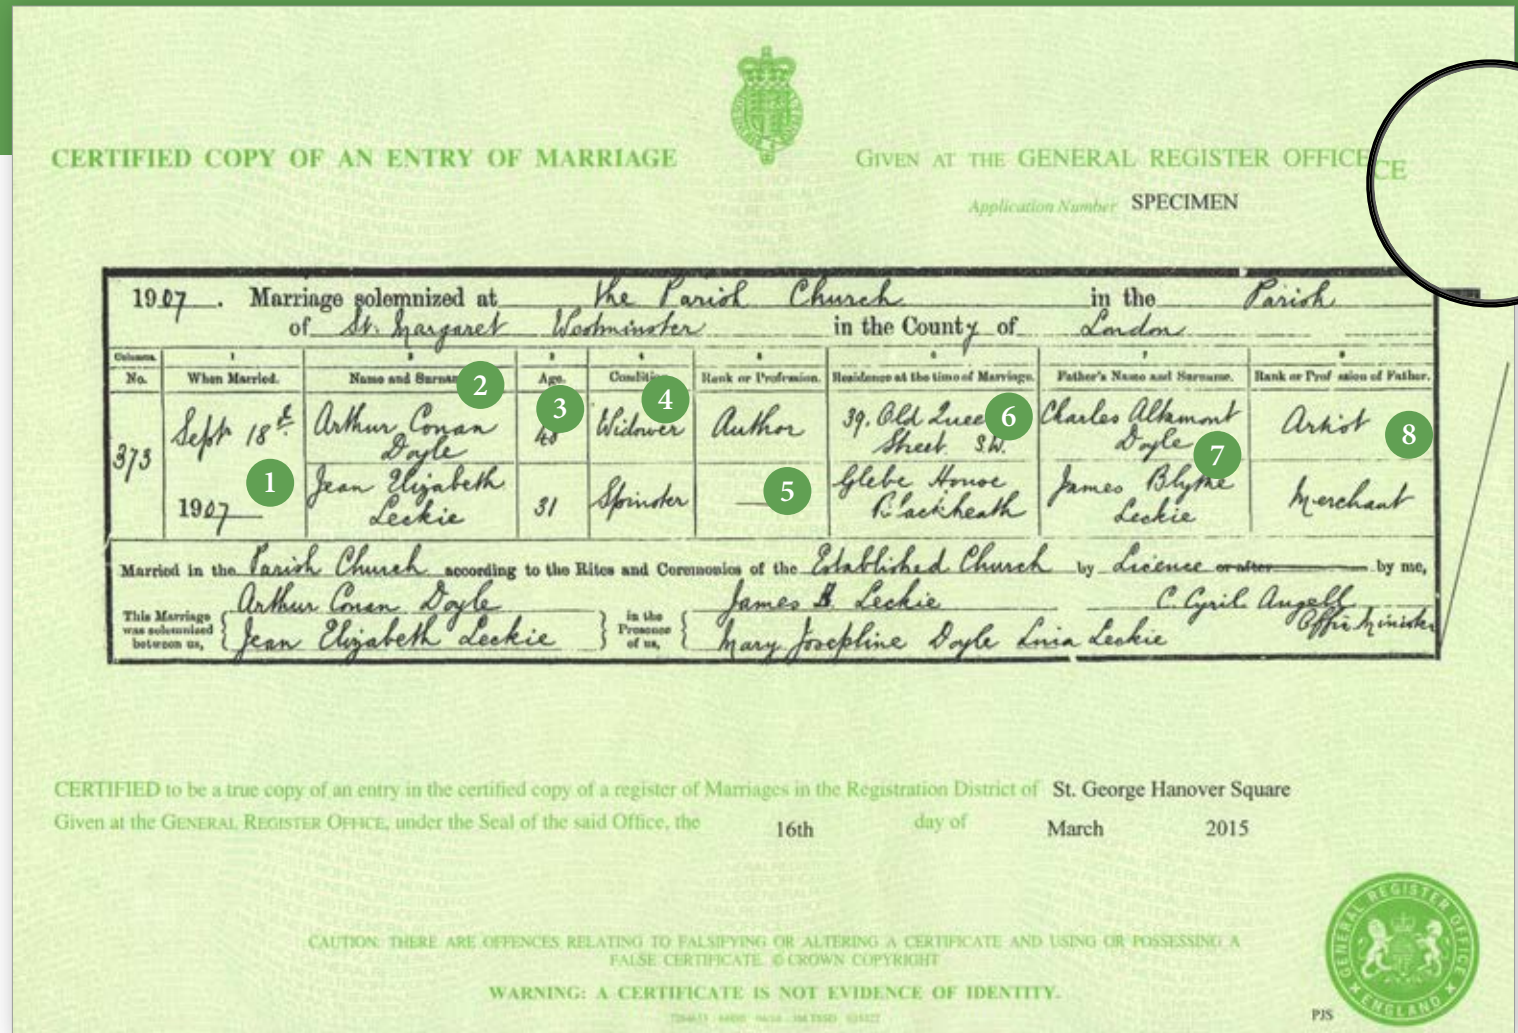 CERTIFIED COPY OF AN ENTRY OF MARRIAGE
GIVEN AT THE GENERAL REGISTER OFFICE
CE
Application Number SPECIMEN
1907. Marriage solemnized at the Parish Church in the Parish
of St. Margaret Westminster in the County of London
Columns. 1 2 3 4 5 6 7 8
No. When Married. Name and Surname 2 Age. Condition Rank or Profession. Residence at the time of Marriage. Father's Name and Surname. Rank or Profession of Father.
373 Sept 18th 1907 1
Arthur Conan Doyle 3 48 Widower 4 Author 39. Old Queen Street S.W. 6 Charles Altamont Doyle 7 Artist 8
Jean Elizabeth Leckie 31 Spinster — 5 Glebe House Blackheath James Blythe Leckie Merchant
Married in the Parish Church according to the Rites and Ceremonies of the Established Church by Licence or after by me,
This Marriage was solemnized between us, Arthur Conan Doyle Jean Elizabeth Leckie
in the Presence of us, James B. Leckie Mary Josephine Doyle Leckie
C. Cyril Angell Minister
CERTIFIED to be a true copy of an entry in the certified copy of a register of Marriages in the Registration District of St. George Hanover Square
Given at the GENERAL REGISTER OFFICE, under the Seal of the said Office, the 16th day of March 2015
CAUTION: THERE ARE OFFENCES RELATING TO FALSIFYING OR ALTERING A CERTIFICATE AND USING OR POSSESSING A
FALSE CERTIFICATE. © CROWN COPYRIGHT
WARNING: A CERTIFICATE IS NOT EVIDENCE OF IDENTITY.
GENERAL REGISTER OFFICE
ENGLAND
PJS